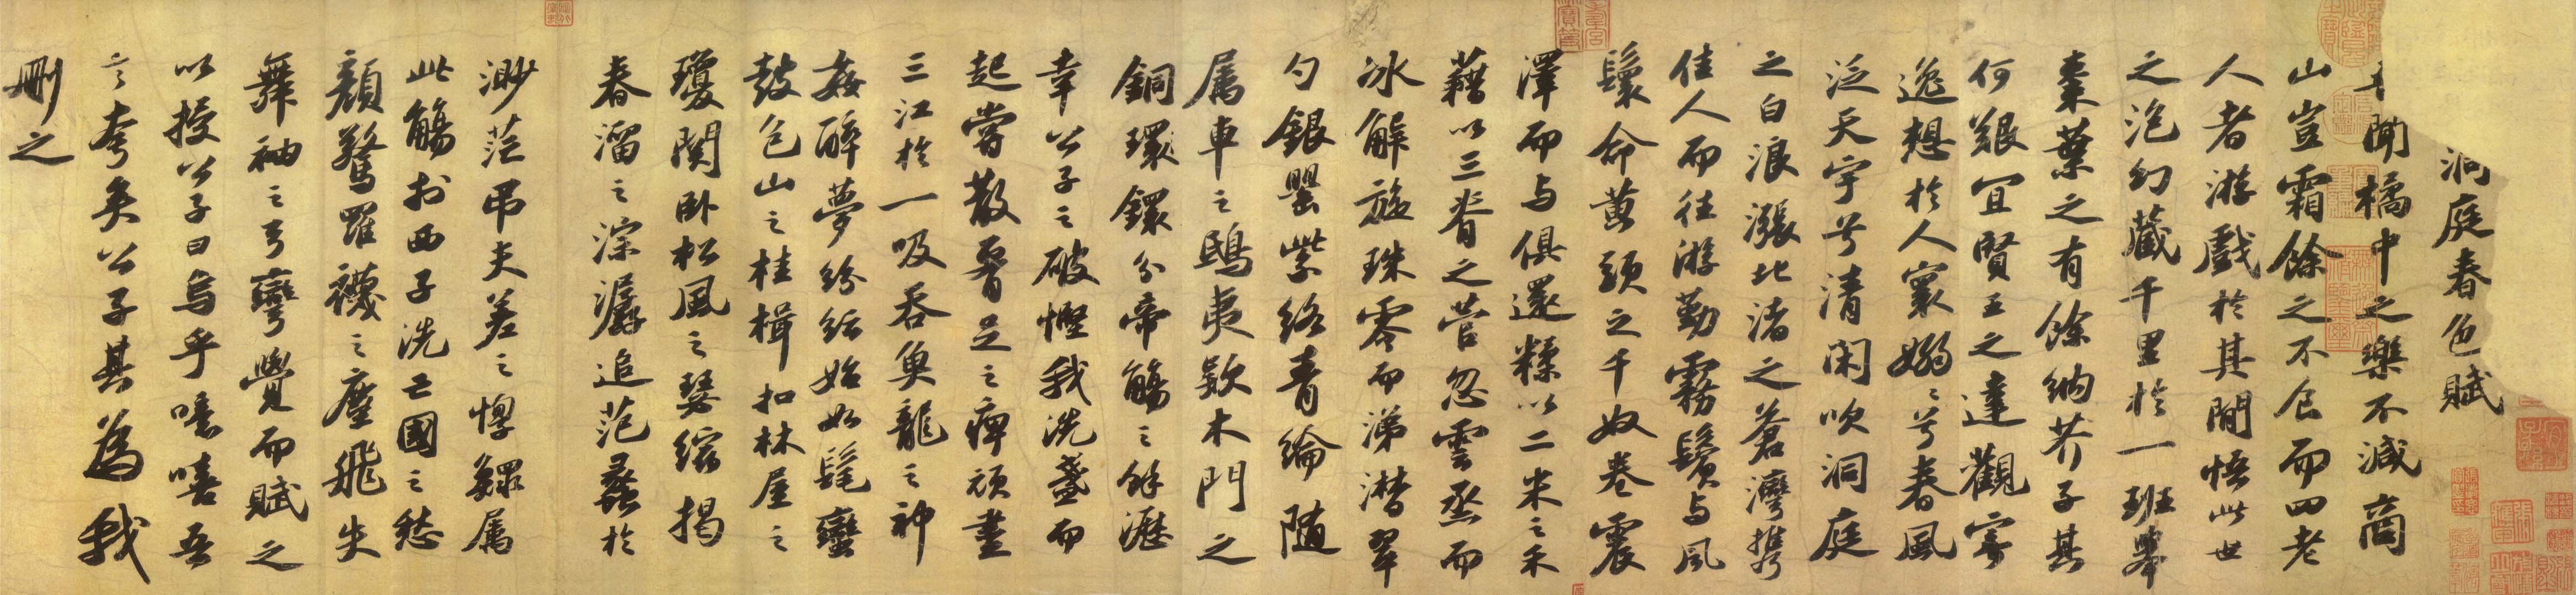 洞庭春色賦
聞橘中之樂不減商
山豈霜餘之不食而四老
人者游戲於其間悟此世
之泡幻藏千里於一班舉
棗葉之有餘納芥子其
何艱宜賢王之達觀寄
逸想於人寰嫋〻兮春風
泛天宇兮清閑吹洞庭
之白浪漲北渚之蒼灣攜
佳人而往游勤霧鬢与風
鬟命黄頭之千奴卷震
澤而与俱還糅以二米之禾
藉以三脊之菅忽雲烝而
冰解旋珠零而涕潸翠
勺銀罌紫絡青綸隨
属車之鴟夷款木門之
銅環鐶分帝觴之餘瀝
幸公子之破慳我洗盞而
起嘗散腰足之痹頑盡
三江於一吸吞魚龍之神
姦醉夢紛紜始如髦蠻
鼓包山之桂楫扣林屋之
瓊関卧松風之瑟縮揭
春溜之淙潺追范蠡於
渺茫吊夫差之惸鰥属
此觴於西子洗亡國之愁
顔驚羅襪之塵飛失
舞袖之弓彎覺而賦之
以授公子曰烏乎噫嘻吾
言夸矣公子其為我
刪之